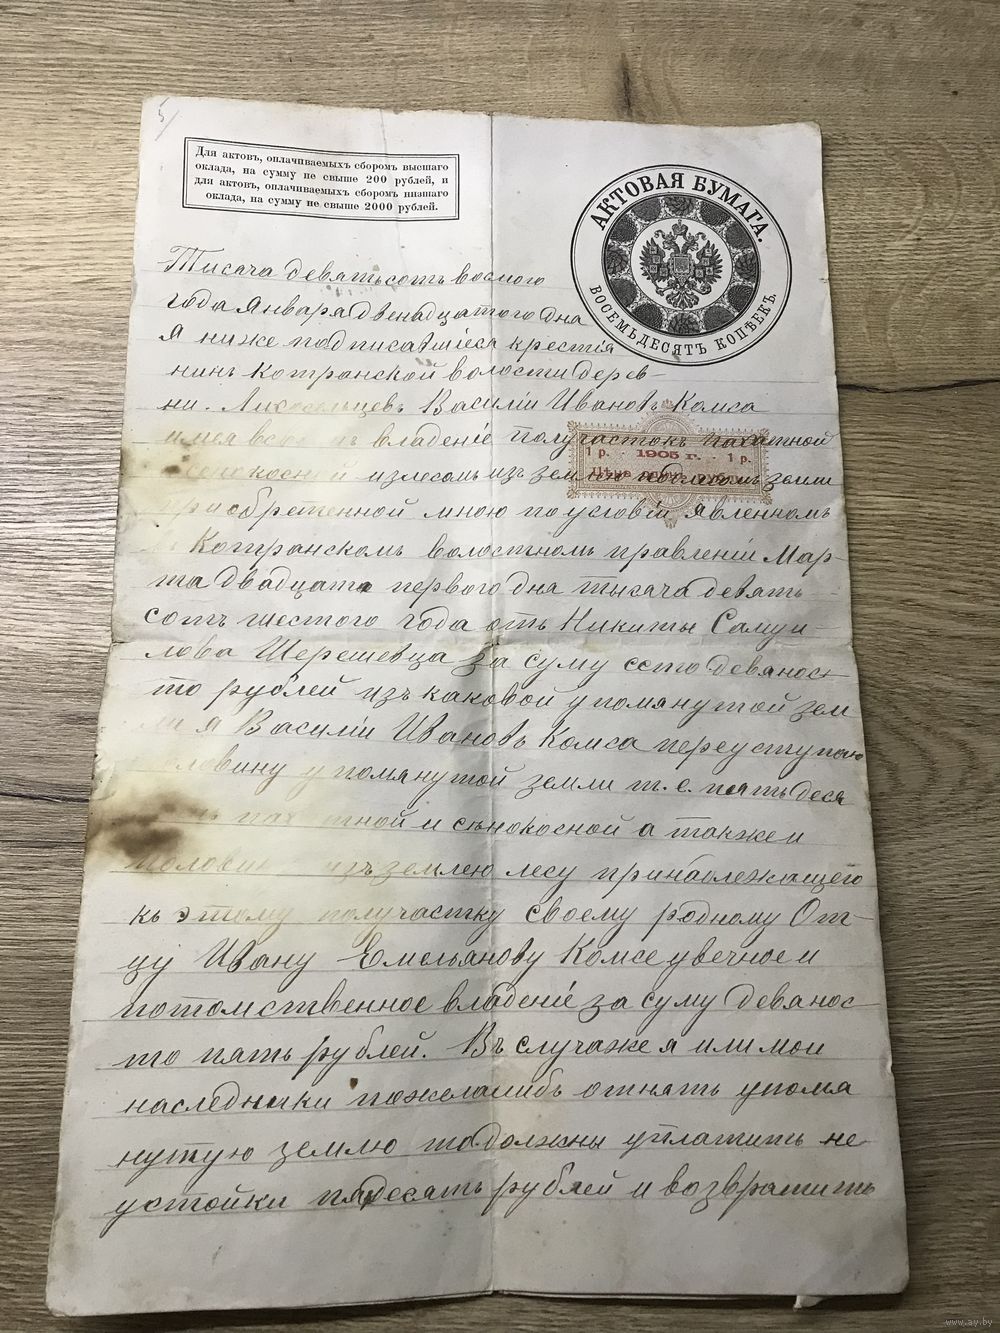 Для актовъ, оплачиваемыхъ сборомъ высшаго
оклада, на сумму не свыше 200 рублей, и
для актовъ, оплачиваемыхъ сборомъ низшаго
оклада, на сумму не свыше 2000 рублей.
АКТОВАЯ БУМАГА.
ВОСЕМЬДЕСЯТЪ КОПѢЕКЪ.
Тисяча девятьсотъ восмого
года Января двенадцатого дна
Я ниже подписавшіеся крестія
нинъ Котранской волости дерев-
ни. Василіи Ивановъ Комса
имея владеніе получастокъ пахатной
1 р. · 1905 г. · 1 р.
Цѣна одинъ рубль
сенокосной и землею земли
приобретенной мною по условіи явленном
въ Котранском волостном правленіи Мар-
та двадцать первого дна тысяча девять-
сотъ шестого года отъ Никиты Самуи
лова Шерешевца за суму ссто девянос-
то рублей изъ каковой упомянутой зем
ли я Василіи Ивановъ Комса переуступаю
половину упомянутой земли т. е. пять деся
пахатной и сѣнокосной а также и
половину изъ землею лесу принадлежащего
къ этому получастку своему родному От-
цу Ивану Емельянову Комсе у вечное и
потомственное владеніе за суму девянос
то пать рублей. Въ случаже я или мои
наследники пожелалибъ отнять упомя
нутую землю то должны уплатить не-
устойки пядесать рублей и возвратить
www.ay.by